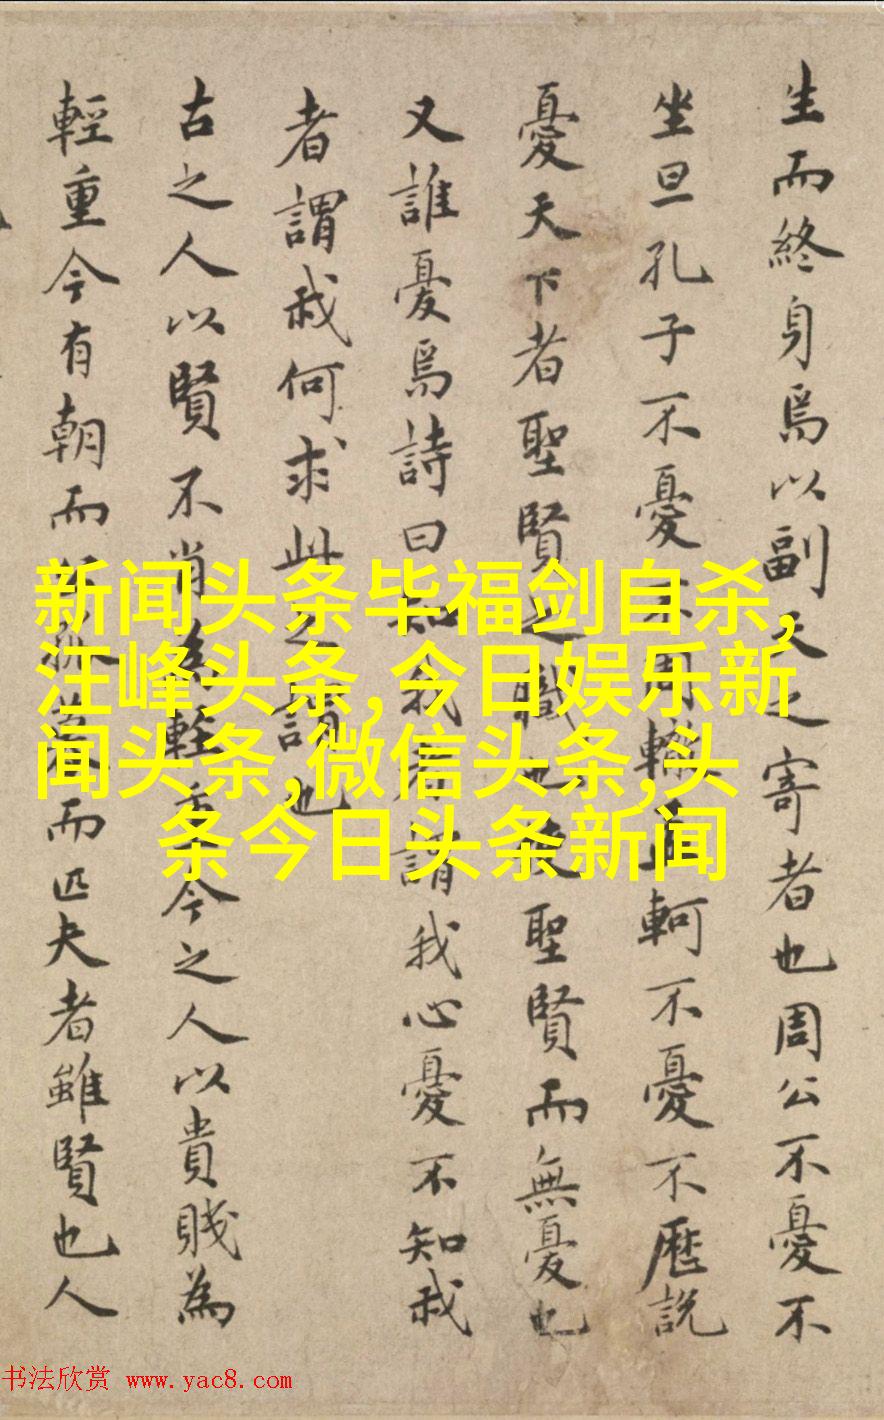 生而終身焉以副天之寄者也周公不憂不
坐旦孔子不憂不周轍孟軻不憂不歷說
憂天下者聖賢之職也使聖賢而無憂也
又誰憂焉詩曰知我者謂我心憂不知我
者謂我何求此之謂也
古之人以賢不肖為輕重今之人以貴賤為
輕重今有朝而而匹夫者雖賢也人
新闻头条毕福剑自杀,
汪峰头条,今日娱乐新
闻头条,微信头条,头
条今日头条新闻
书法欣赏 www.yac8.com